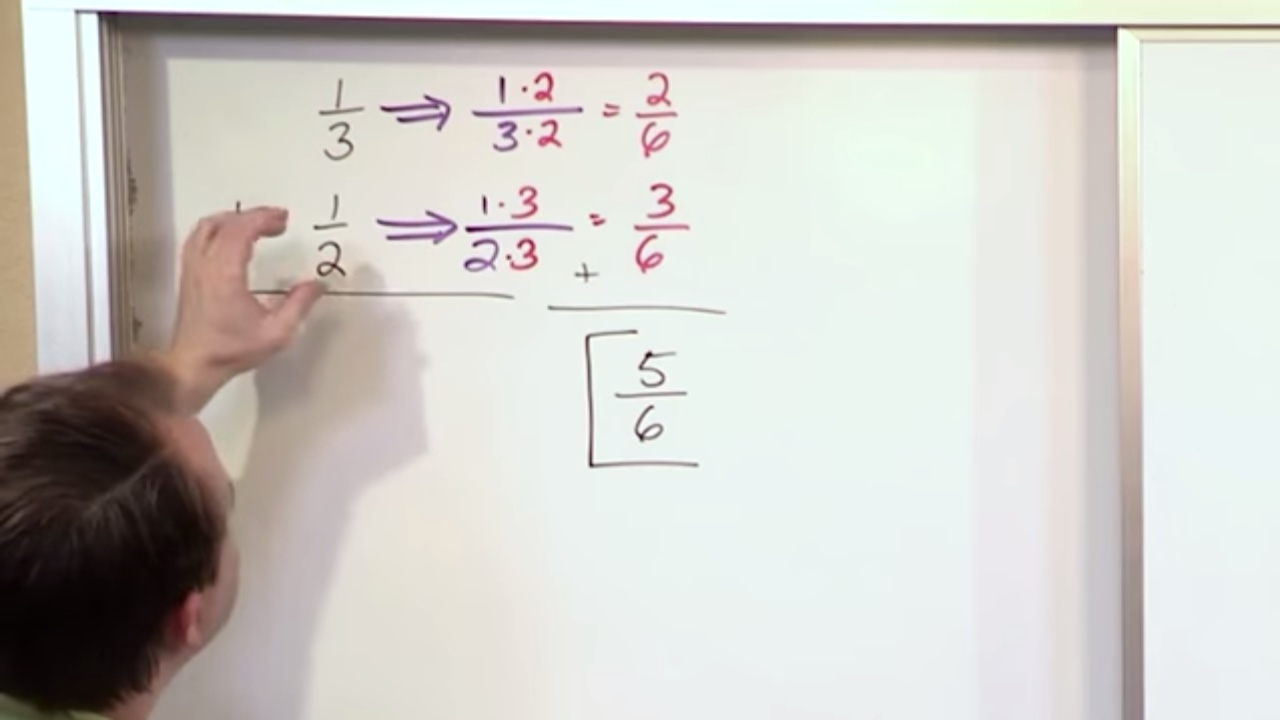 1/3 ⟹ 1·2/3·2 = 2/6
+ 1/2 ⟹ 1·3/2·3 = 3/6
+
5/6